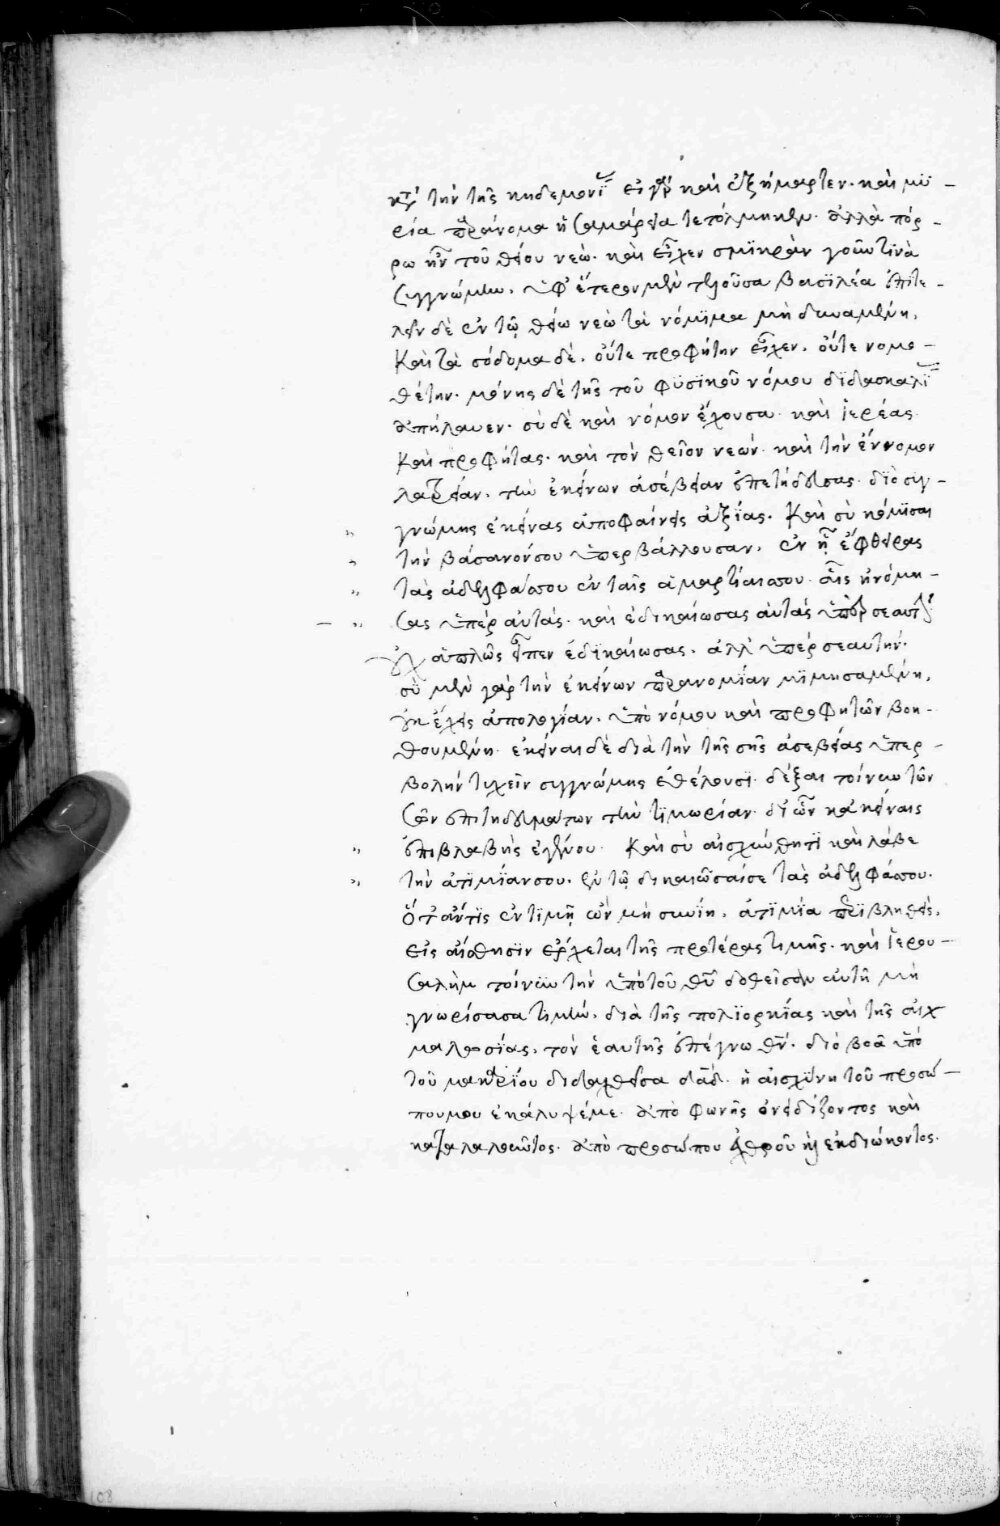 κατὰ τὴν τῆς κηδεμονί εἰ γὰρ καὶ ἐξήμαρτεν· καὶ μυ
ρία παράνομα ἡ σαμάρεια τετόλμηκεν· ἀλλὰ πόρ
ρω ἦν τοῦ θείου νεώ· καὶ εἶχεν σμικρὰν γοῦν τινὰ
συγγνώμην. ὑφ' ἕτερον μὲν τελοῦσα βασιλέα ἐπιτε
λεῖν δὲ ἐν τῷ θείω νεὼ τὰ νόμιμα μὴ δυναμένη.
Καὶ τὰ σόδομα δὲ. οὔτε προφήτην εἶχεν. οὔτε νομο
θέτην· μόνης δὲ τῆς τοῦ φυσικοῦ νόμου διδασκαλί
ἀπήλαυεν· σὺ δὲ καὶ νόμον ἔχουσα· καὶ ἱερέας
Καὶ προφήτας· καὶ τὸν θεῖον νεών· καὶ τὴν ἔννομον
λατρείαν. τὴν ἐκείνων ἀσέβειαν ἐπετήδευσας· διὸ συγ
γνώμης ἐκείνας ἀποφαίνεις ἀξίας. Καὶ σὺ κόμισαι
τὴν βάσανόν σου ὑπερβάλλουσαν. ἐν ᾗ ἔφθειρας
τὰς ἀδελφάς σου ἐν ταῖς ἁμαρτίαις σου· αἷς ἠνόμη
σας ὑπὲρ αὐτάς· καὶ ἐδικαίωσας αὐτὰς ὑπὲρ σεαυτή
οὐχ ἁπλῶς εἶπεν ἐδικαίωσας. ἀλλ' ὑπὲρ σεαυτήν·
σὺ μὲν γὰρ τὴν ἐκείνων παρανομίαν μιμησαμένη,
οὐκ ἔχεις ἀπολογίαν. ὑπὸ νόμου καὶ προφητῶν βοη
θουμένη· ἐκεῖναι δὲ διὰ τὴν τῆς σῆς ἀσεβείας ὑπερ
βολὴν τυχεῖν συγγνώμης ἐθέλουσι· δέξαι τοίνυν τῶν
σῶν ἐπιτηδευμάτων τὴν τιμωρίαν· δι' ὧν κἀκείναις
ἐπιβλαβὴς ἐγένου. Καὶ σὺ αἰσχύνθητι καὶ λάβε
τὴν ἀτιμίαν σου. ἐν τῷ δικαιῶσαί σε τὰς ἀδελφάς σου.
ὅτ' ἄν τις ἐν τιμῇ ὢν μὴ συνίη. ἀτιμία περιβληθείς.
εἰς αἴσθησιν ἔρχεται τῆς προτέρας τιμῆς· καὶ ἱερου
σαλὴμ τοίνυν τὴν ὑπὸ τοῦ θῦ δοθεῖσαν αὐτῆ μὴ
γνωρίσασα τιμὴν. διὰ τῆς πολιορκίας καὶ τῆς αἰχ
μαλωσίας. τὸν ἑαυτῆς ἐπέγνω θν· διὸ βοᾶ ὑπὸ
τοῦ μακαρίου διδαχθεῖσα δαδ· ἡ αἰσχύνη τοῦ προσώ
που μου ἐκάλυψέ με· ἀπὸ φωνῆς ὀνειδίζοντος καὶ
καταλαλοῦντος· ἀπὸ προσώπου ἐχθροῦ καὶ ἐκδιώκοντος·